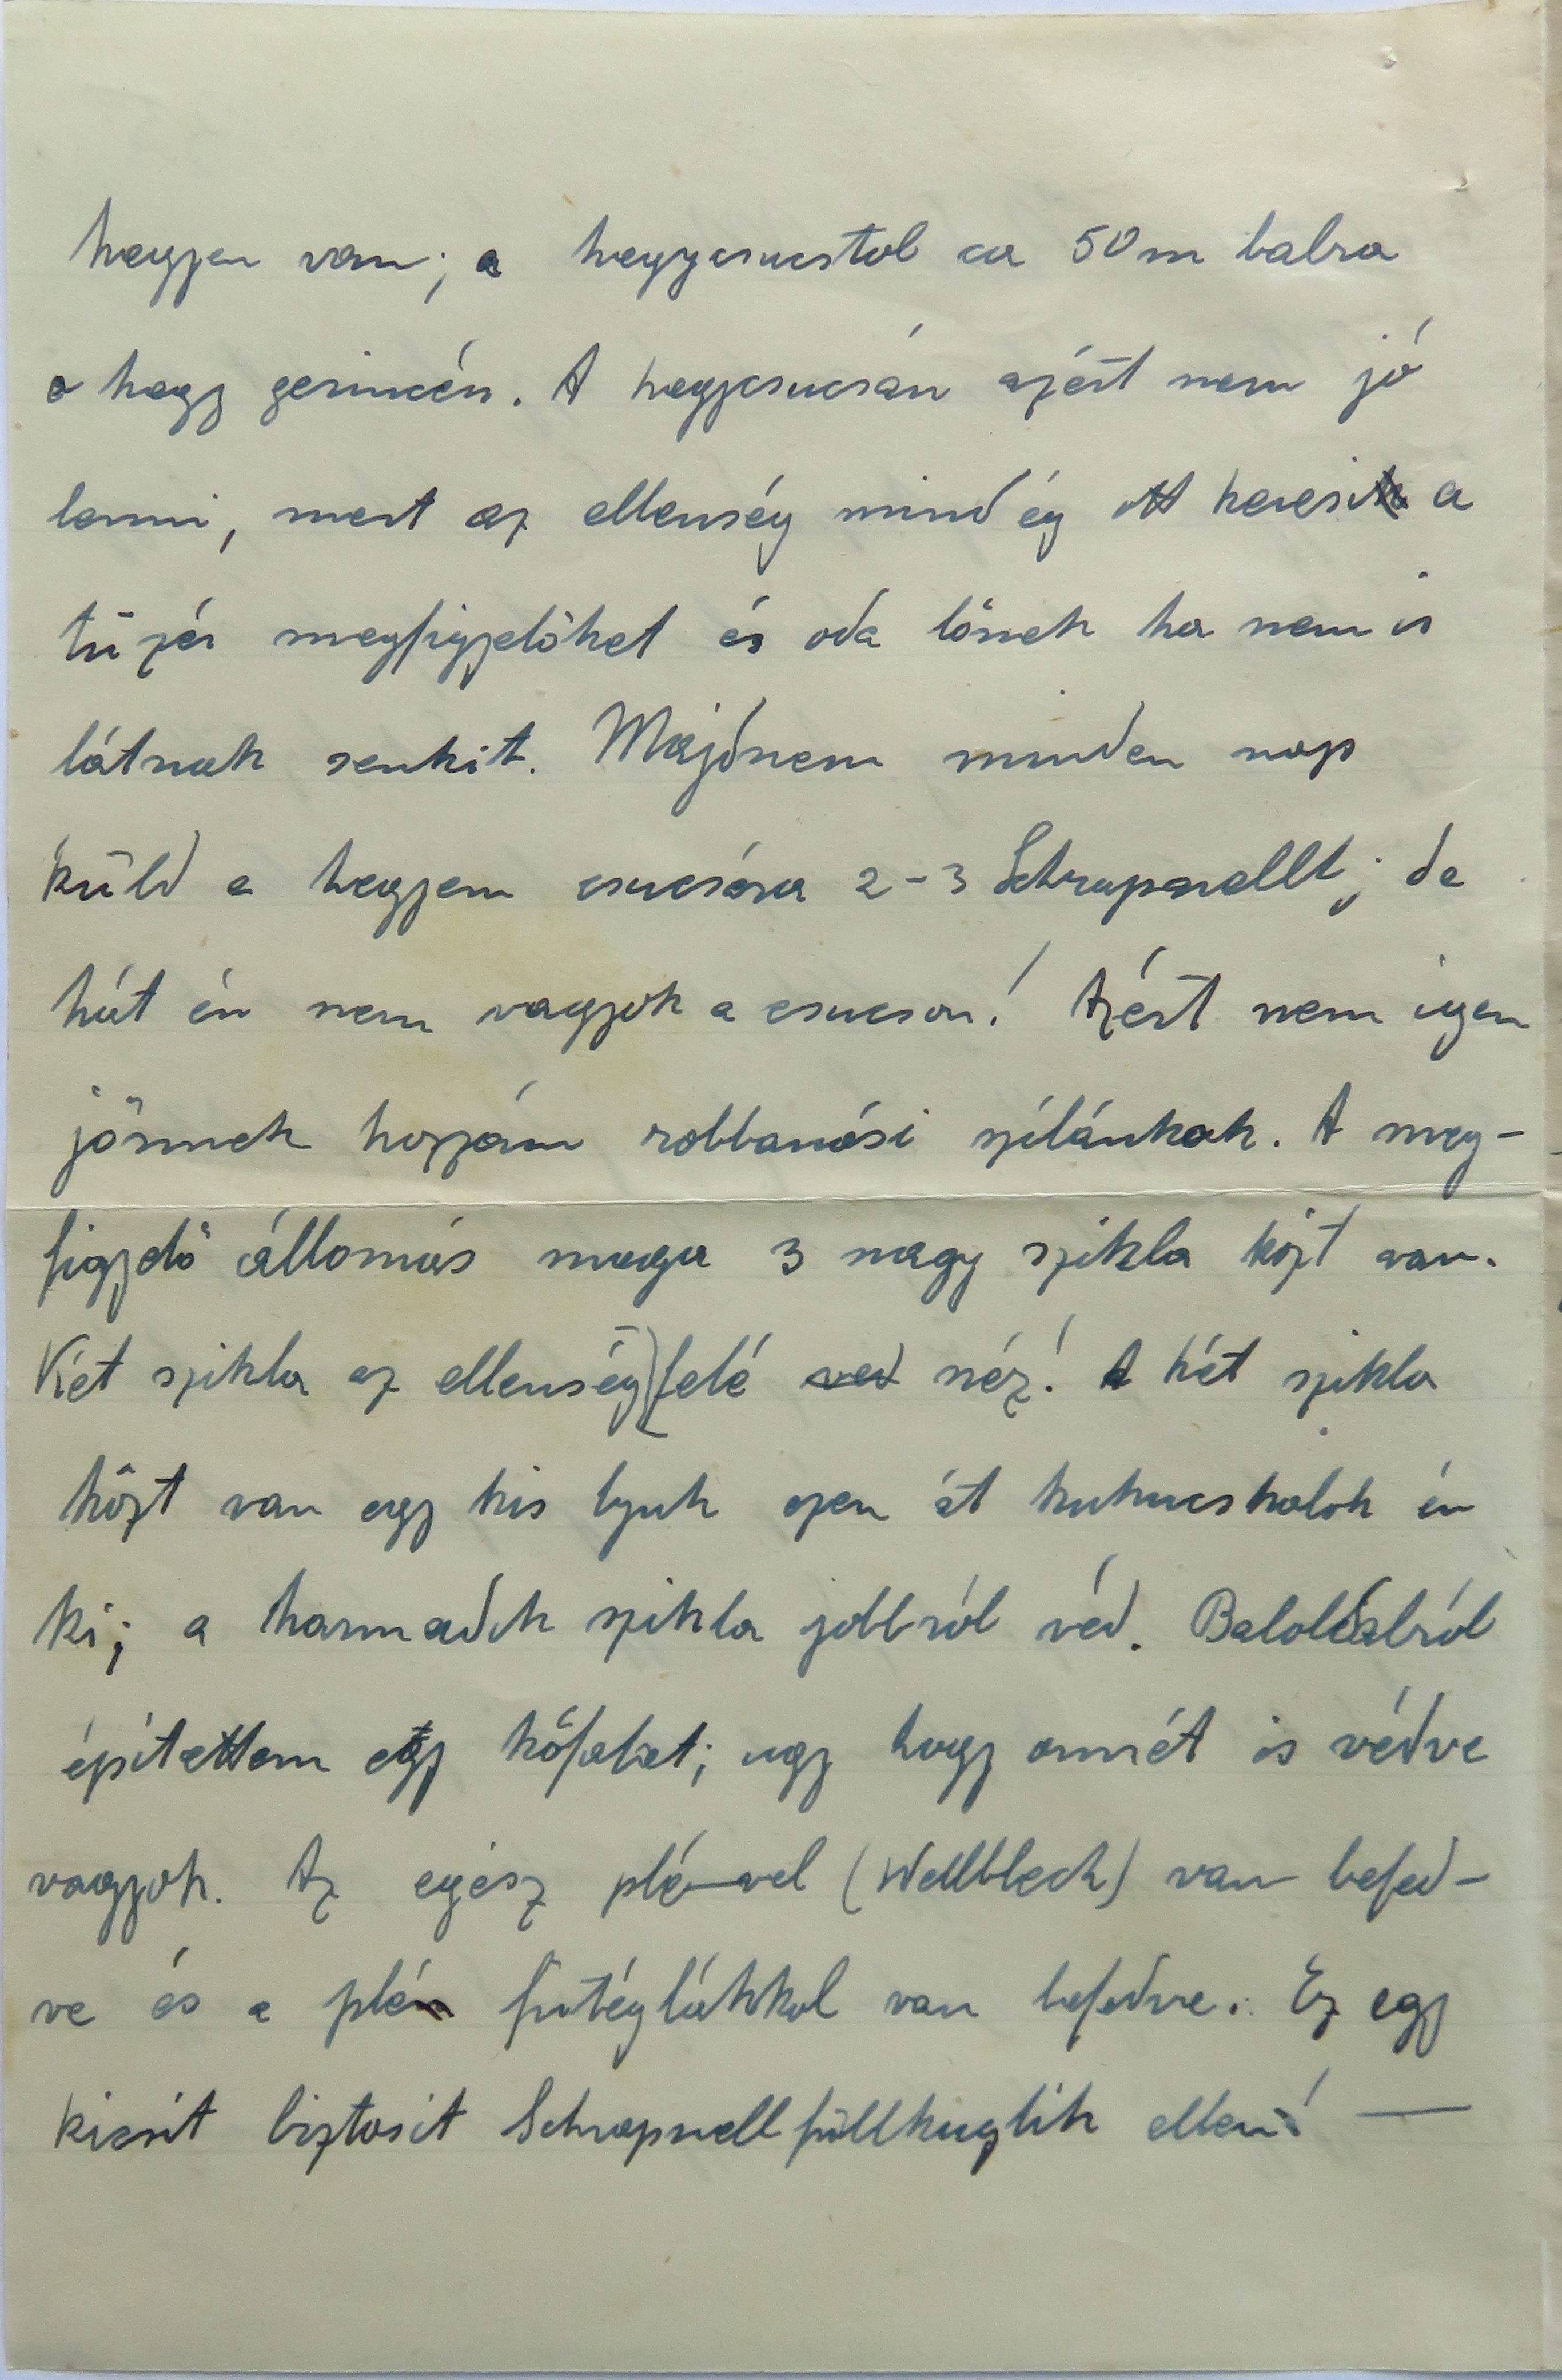 hegyen van; a hegycsucstol ca 50m balra
a hegy gerincén. A hegycsucsán azért nem jó
lenni, mert az ellenség mindég ott keresi a
tüzér megfigyelöket és oda lőnek ha nem is
látnak senkit. Majdnem minden nap
küld a hegyem csucsára 2-3 Schrapnellt; de
hát én nem vagyok a csucson! Azért nem igen
jönnek hozzám robbanási szilánkok. A meg-
figyelő állomás maga 3 nagy szikla közt van.
Két szikla az ellenség felé ved néz! A két szikla
közt van egy kis lyuk ezen át kukucskalok én
ki; a harmadik szikla jobbról véd. Baloldalról
építettem egy kőfalat; ugy hogy onnét is védve
vagyok. Az egész plé-vel (Wellblech) van befed-
ve és a plé fütéglákkal van befedve. Ez egy
kicsit biztosit Schrapnellfüllkuglik ellen! —